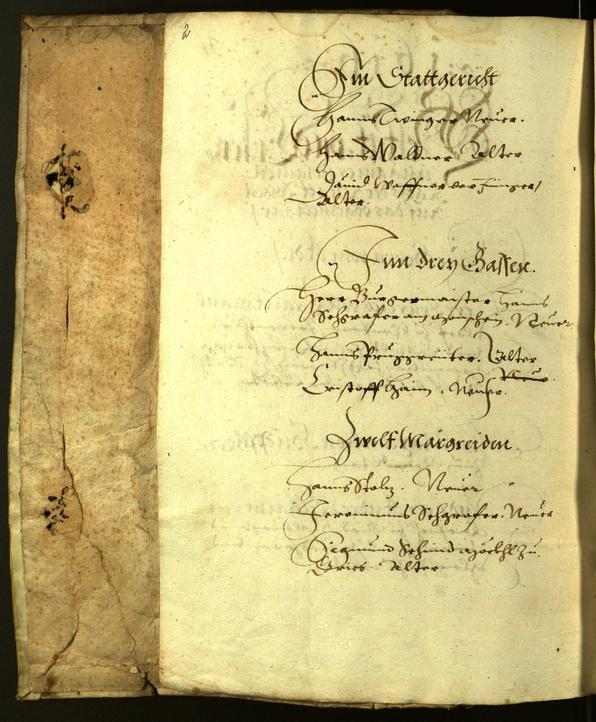 2
Im Stattgericht
Hanns Zwinger Neuer.
Hanns Waldner Alter
Waffner der Jünger /
Alter.
Inn dreÿ Gassen.
Herr Burgermaister Hanns
Schgrafer am Neuer
Hanns Pruggreuter. Alter
Cristoff Haim. Neuer.
Zwelf Margreiden
Hanns Stolz. Neuer
Jeronimus Schgrafer. Neuer
Sigmund Schmid zu
Gries Alter